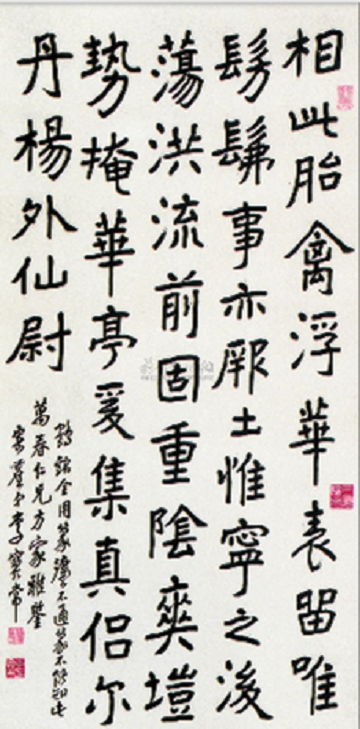 相此胎禽浮華表畱唯
髣髴事亦厥土惟寧之後
蕩洪流前固重陰爽塏
勢掩華亭爰集真侶尔
丹楊外仙尉
鶴銘全用篆灋不通篆不能知此
萬春仁兄方家雅鑒